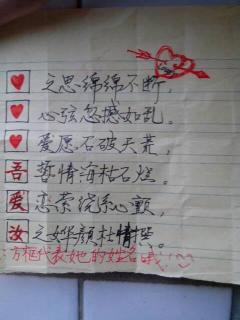 ♥之思绵绵不断,
♥心弦忽撼如乱。
♥爱愿石破天荒,
吾誓情海枯石烂。
爱恋萦绕系心颤,
汝之娇颜杜情拦。
方框代表她的姓名哦!